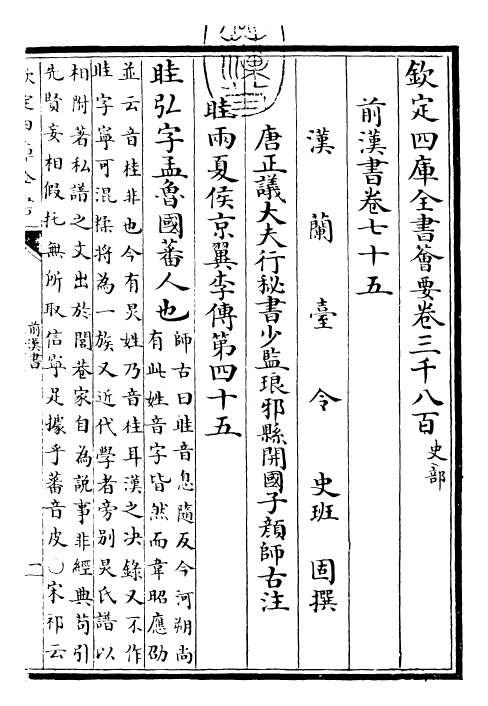 欽定四庫全書薈要卷三千八百 史部
前漢書卷七十五
漢蘭臺令史班固撰
唐正議大夫行秘書少監琅邪縣開國子顔師古注
眭兩夏侯京翼李傳第四十五
眭弘字孟魯國蕃人也
師古曰眭音息隨反今河朔尚
有此姓音字皆然而韋昭應劭
並云音桂非也今有炅姓乃音桂耳漢之决錄又不作
眭字寧可混糅將為一族又近代學者旁别炅氏譜以
相附著私譜之文出於閭巷家自為説事非經典苟引
先賢妄相假托無所取信寧足據乎蕃音皮○宋祁云
前漢書